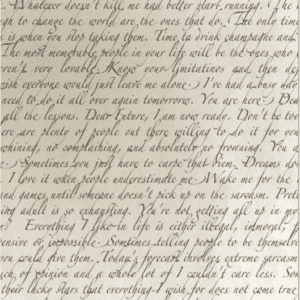 . Whatever doesn't kill me had better start running. The
gh to change the world are the ones that do. The only time
is when you stop taking them. Time to drink champagne and
The most memorable people in your life will be the ones who
eren't very lovable. Know your limitatinos and then de
wish everyone would just leave me alone. I've had a busy da
need to do it all over again tomorrow. You are here. De
all the lessons. Dear Future, I am now ready. Don't be to
ere are plenty of people out there willing to do it for yo
whining, no complaching, and absolutely no frowning. You a
e Sometimes you just have to carpe that diem. Dreams do
. I love it when people underestimate me Wake me for the
nd games until someone doesn't pick up on the sarcasm. Pret
ing adult is so exhausting. You're not getting all up in my
? Everything I like in life is either illegal, immoral, f
ensive or impossible Sombines telling people to be themselv
ou could give them. Today's forecast involves extreme sarcasm
uch of opinion and a whole lot of I couldn't care less. So
their lucky stars that everything I wish for does not come true